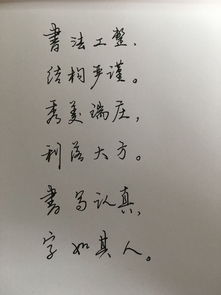 書法工整,
结构严谨。
秀美端庄,
利落大方。
書写认真,
字如其人。